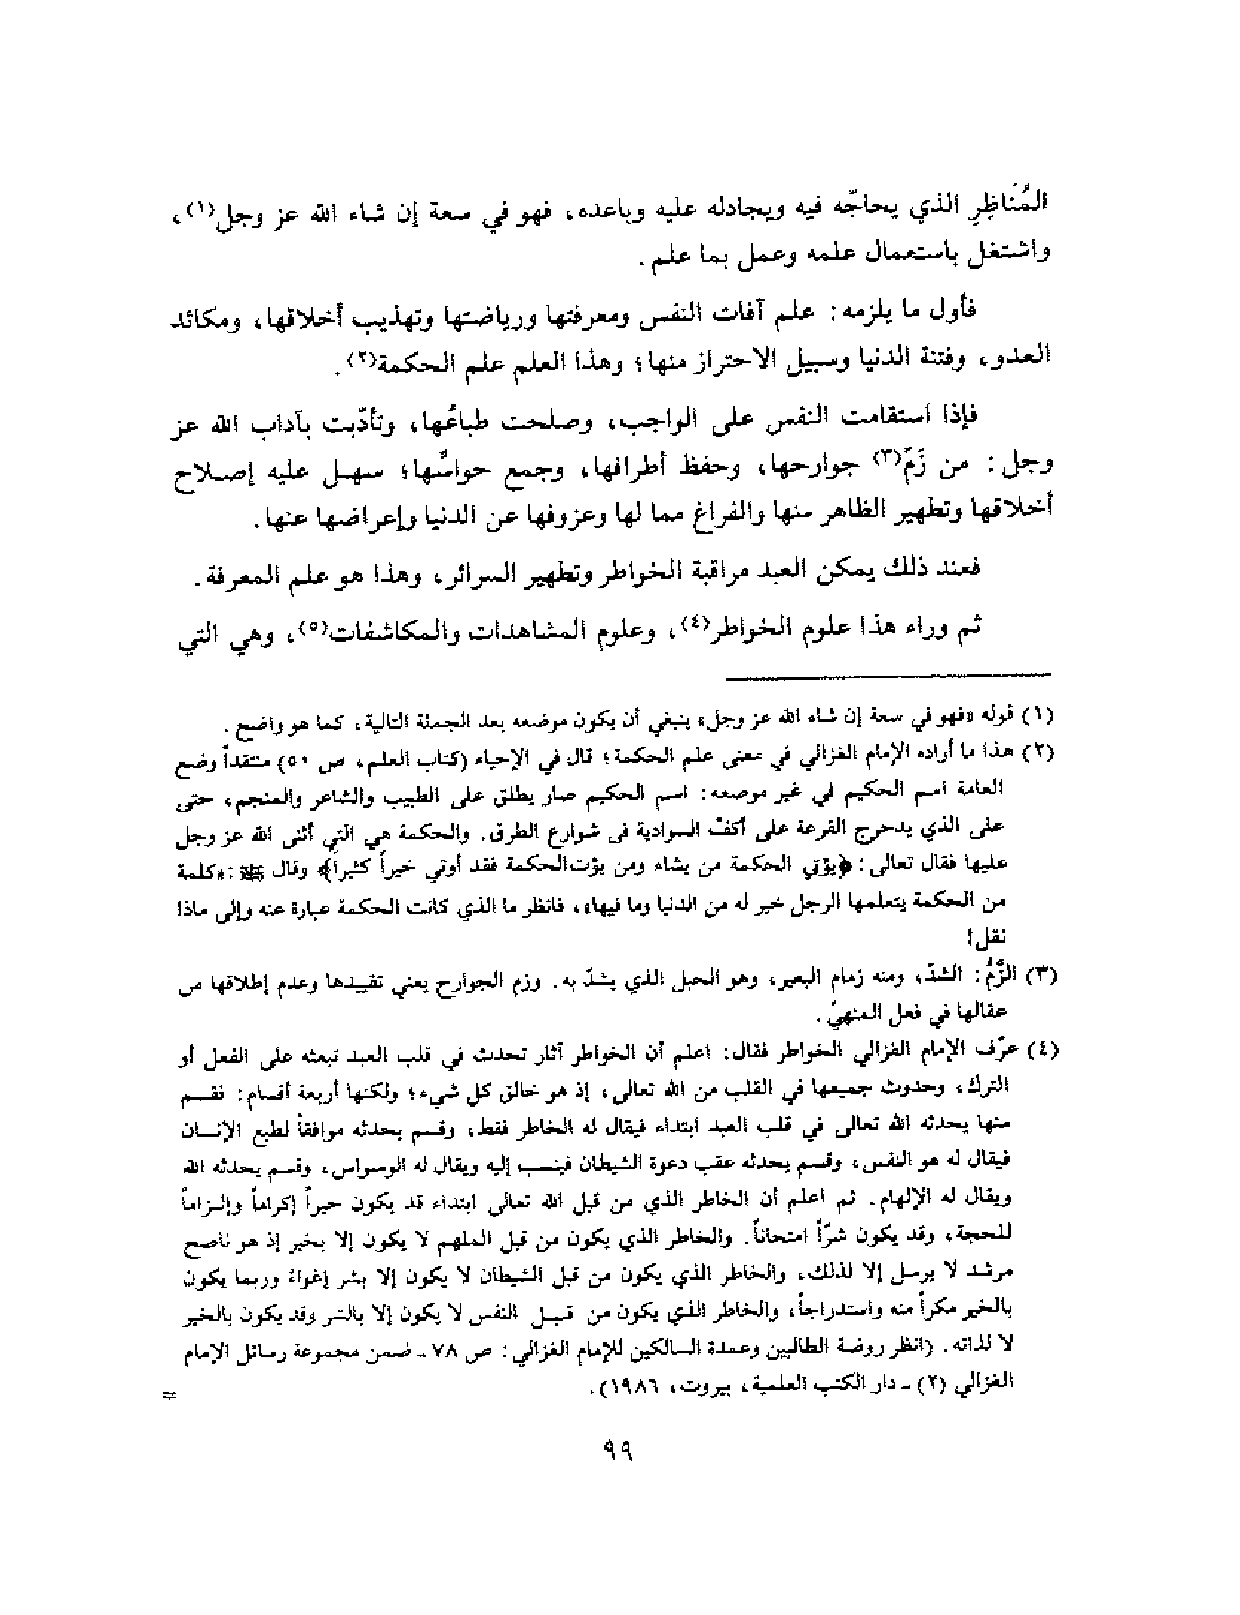 المُناظِرِ الذي يحاجّه فيه ويجادله عليه وباعده، فهو في سعة إن شاء الله عز وجل(١)،
واشتغل باستعمال علمه وعمل بما علم.
فأول ما يلزمه: علم آفات النفس ومعرفتها ورياضتها وتهذيب أخلاقها، ومكائد
العدو، وفتنة الدنيا وسبيل الاحتراز منها؛ وهذا العلم علم الحكمة(٢).
فإذا استقامت النفس على الواجب، وصلحت طباعُها، وتأدّبت بآداب الله عز
وجل: من زَمّ(٣) جوارحها، وحفظ أطرافها، وجمع حواسّها؛ سهل عليه إصلاح
أخلاقها وتطهير الظاهر منها والفراغ مما لها وعزوفها عن الدنيا وإعراضها عنها.
فعند ذلك يمكن العبد مراقبة الخواطر وتطهير السرائر، وهذا هو علم المعرفة.
ثم وراء هذا علوم الخواطر(٤)، وعلوم المشاهدات والمكاشفات(٥)، وهي التي
(١) قوله «فهو في سعة إن شاء الله عز وجل» ينبغي أن يكون موضعه بعد الجملة التالية، كما هو واضح.
(٢) هذا ما أراده الإمام الغزالي في معنى علم الحكمة؛ قال في الإحياء (كتاب العلم، ص ٥٠) منتقداً وضع
العامة اسم الحكيم في غير موضعه: اسم الحكيم صار يطلق على الطبيب والشاعر والمنجم، حتى
على الذي يدحرج القرعة على أكفّ السوادية في شوارع الطرق. والحكمة هي التي أثنى الله عز وجل
عليها فقال تعالى: ﴿يؤتي الحكمة من يشاء ومن يؤت الحكمة فقد أوتي خيراً كثيراً﴾ وقال ﷺ: «كلمة
من الحكمة يتعلمها الرجل خير له من الدنيا وما فيها»، فانظر ما الذي كانت الحكمة عبارة عنه وإلى ماذا
نقل!
(٣) الزَّمُّ: الشدّ، ومنه زمام البعير، وهو الحبل الذي يشدّ به. وزم الجوارح يعني تقييدها وعدم إطلاقها من
عقالها في فعل المنهيّ.
(٤) عرّف الإمام الغزالي الخواطر فقال: اعلم أن الخواطر آثار تحدث في قلب العبد تبعثه على الفعل أو
الترك، وحدوث جميعها في القلب من الله تعالى، إذ هو خالق كل شيء؛ ولكنها أربعة أقسام: فقسم
منها يحدثه الله تعالى في قلب العبد ابتداء فيقال له الخاطر فقط، وقسم يحدثه موافقاً لطبع الإنسان
فيقال له هو النفس، وقسم يحدثه عقب دعوة الشيطان فينسب إليه ويقال له الوسواس، وقسم يحدثه الله
ويقال له الإلهام. ثم اعلم أن الخاطر الذي من قبل الله تعالى ابتداء قد يكون خيراً إكراماً وإلزاماً
للحجة، وقد يكون شرّاً امتحاناً. والخاطر الذي يكون من قبل الملهم لا يكون إلا بخير إذ هو ناصح
مرشد لا يرسل إلا لذلك، والخاطر الذي يكون من قبل الشيطان لا يكون إلا بشر إغواءً وربما يكون
بالخير مكراً منه واستدراجاً، والخاطر الذي يكون من قبل النفس لا يكون إلا بالشر وقد يكون بالخير
لا لذاته. (انظر روضة الطالبين وعمدة السالكين للإمام الغزالي: ص ٧٨ - ضمن مجموعة رسائل الإمام
الغزالي (٢) - دار الكتب العلمية، بيروت، ١٩٨٦).
=
٩٩